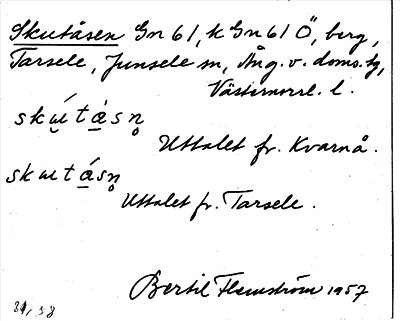 Skutåsen Gn 61, k Gn 61 Ö, berg,
Tarsele, Junsele sn, Ång. v. doms. tg,
Västernorrl. l.
skʉ́tåsn̥
Uttalet fr. Kvarnå.
skʉtǻsn̥
Uttalet fr. Tarsele.
Bertil Flemström 1957